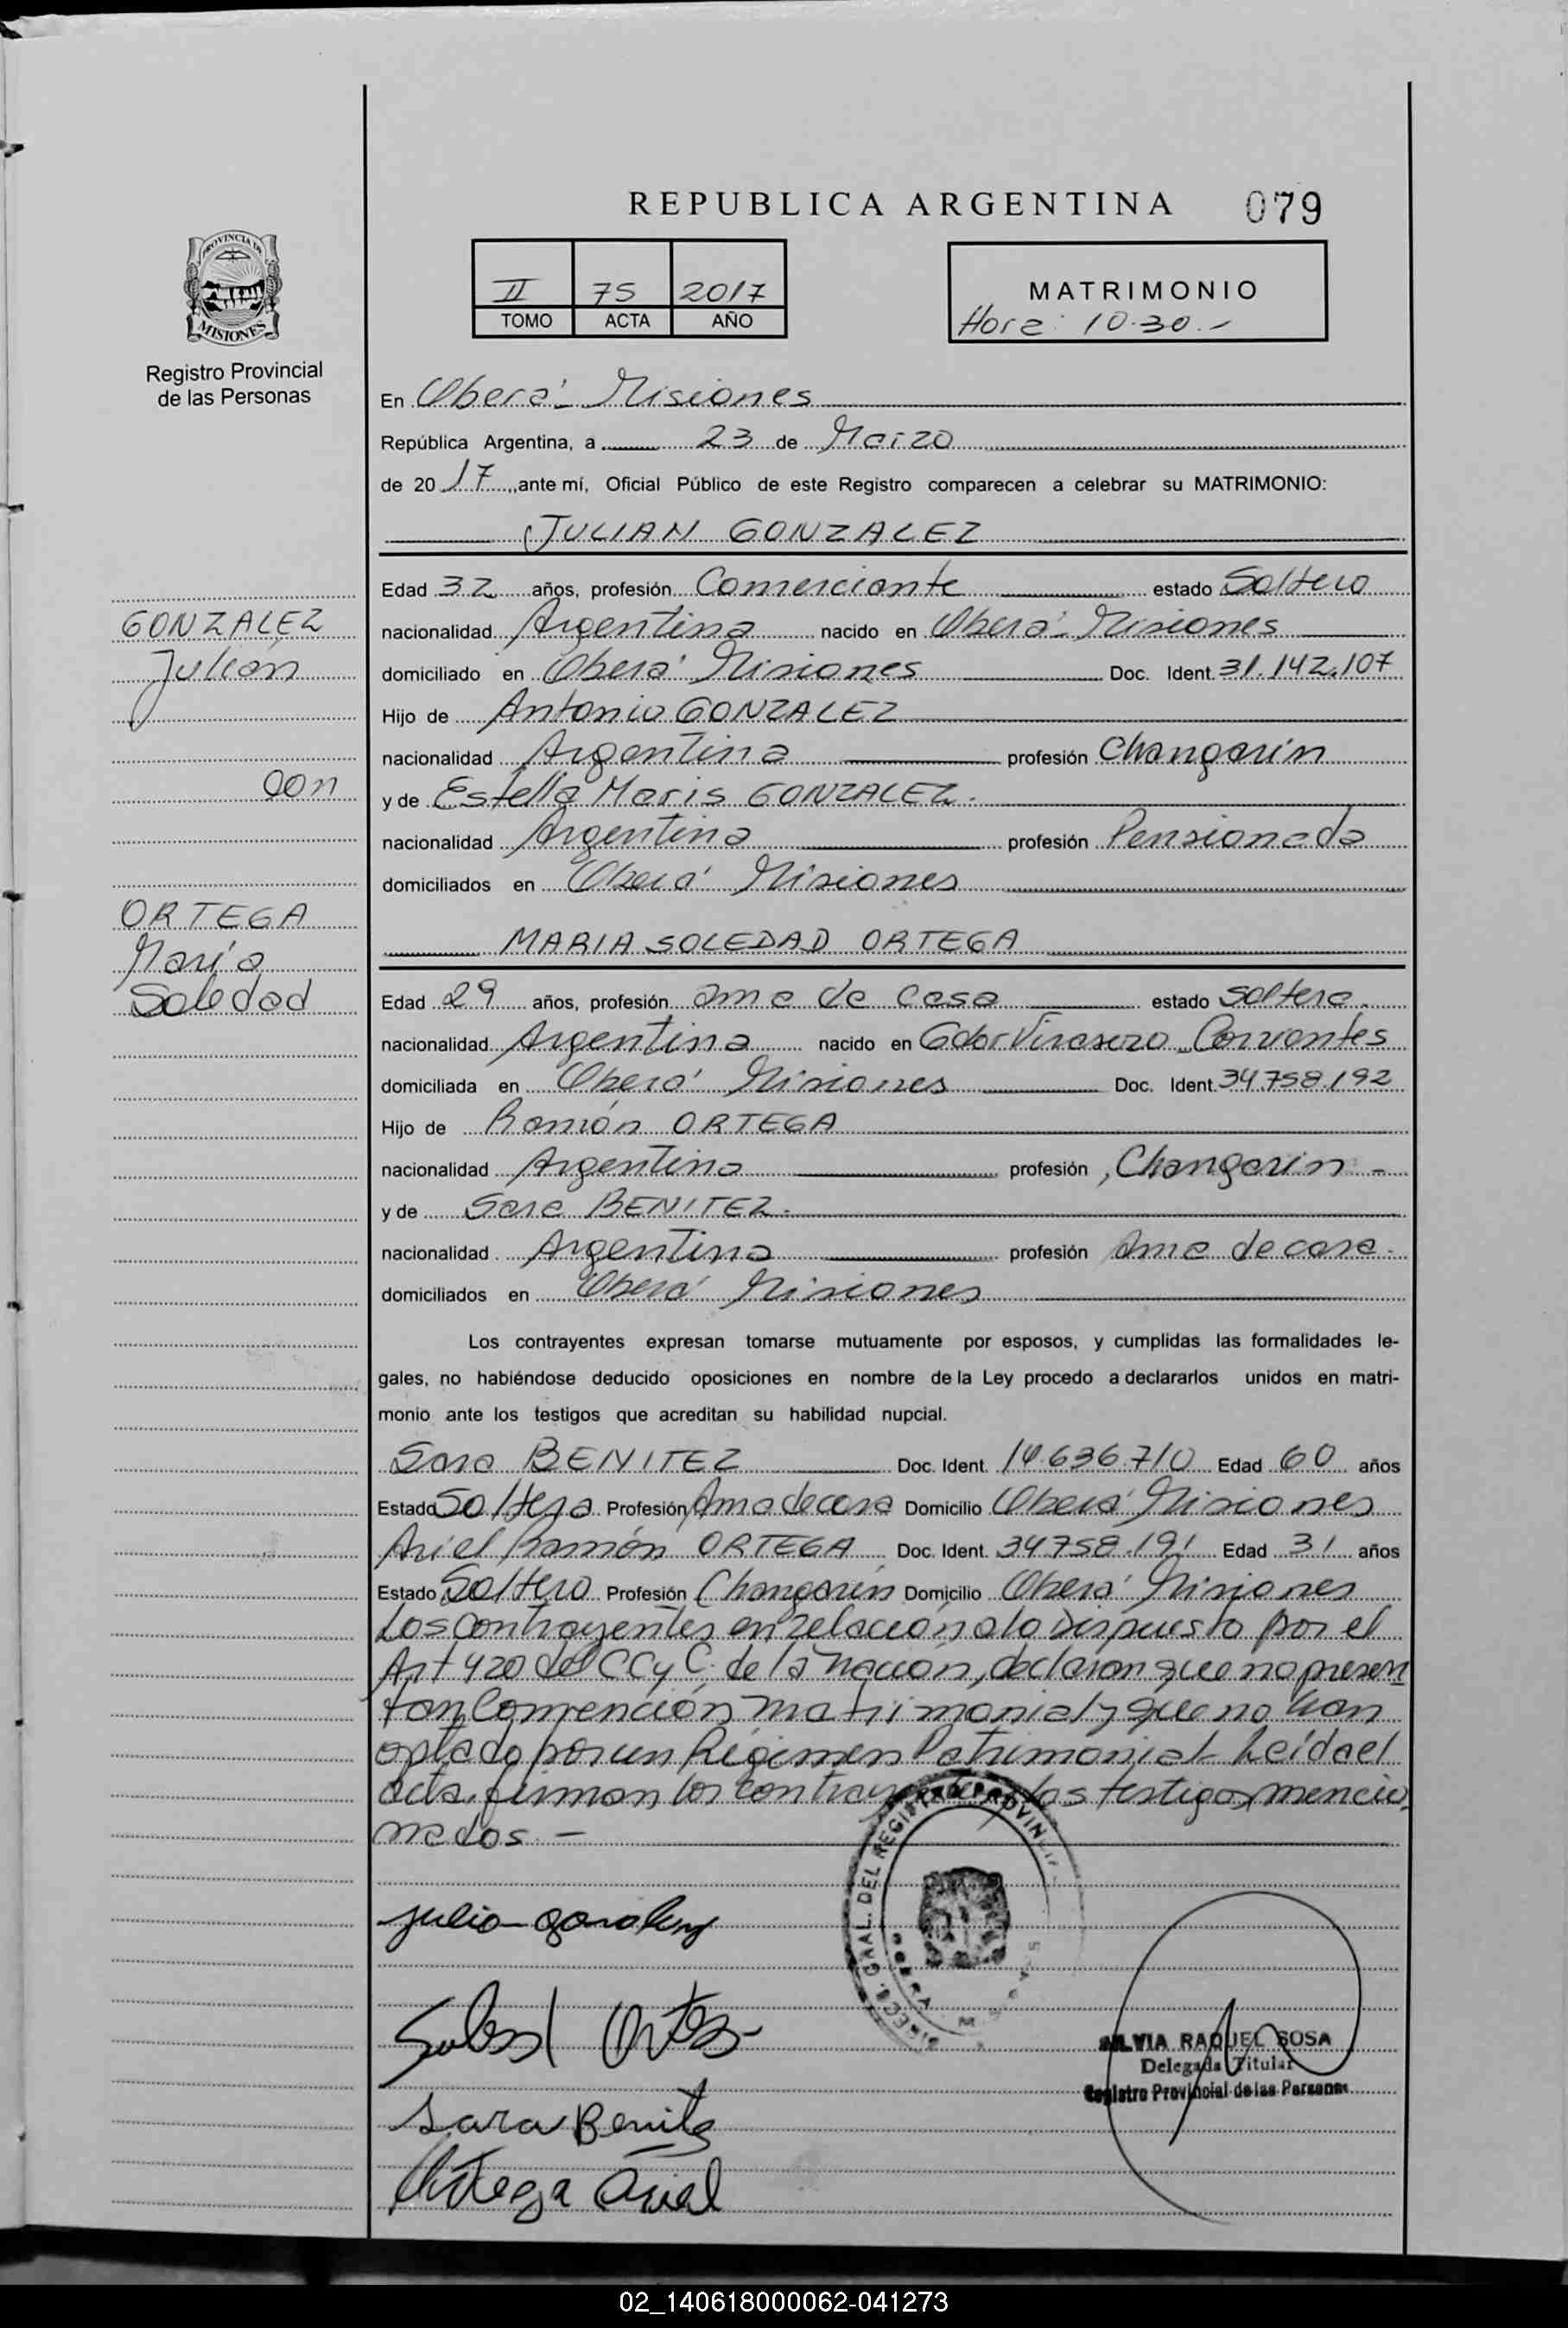 REPUBLICA ARGENTINA 079
PROVINCIA DE
MISIONES
Registro Provincial
de las Personas
II 75 2017
TOMO ACTA AÑO
MATRIMONIO
Hora: 10.30.-
En Oberá - Misiones
República Argentina, a 23 de Marzo
de 2017, ante mí, Oficial Público de este Registro comparecen a celebrar su MATRIMONIO:
JULIAN GONZALEZ
Edad 32 años, profesión Comerciante estado Soltero
GONZALEZ
nacionalidad Argentina nacido en Oberá - Misiones
Julián
domiciliado en Oberá Misiones Doc. Ident. 31.142.107
Hijo de Antonio GONZALEZ
nacionalidad Argentina profesión Changarín
con
y de Estella Maris GONZALEZ.
nacionalidad Argentina profesión Pensionada
domiciliados en Oberá Misiones
ORTEGA
MARIA SOLEDAD ORTEGA
María
Soledad
Edad 29 años, profesión ama de casa estado soltera.
nacionalidad Argentina nacido en Gdor Virasoro - Corrientes
domiciliada en Oberá Misiones Doc. Ident. 34.758.192
Hijo de Ramón ORTEGA
nacionalidad Argentina profesión Changarín -
y de Sara BENITEZ.
nacionalidad Argentina profesión Ama de casa.
domiciliados en Oberá Misiones
Los contrayentes expresan tomarse mutuamente por esposos, y cumplidas las formalidades le-
gales, no habiéndose deducido oposiciones en nombre de la Ley procedo a declararlos unidos en matri-
monio ante los testigos que acreditan su habilidad nupcial.
Sara BENITEZ Doc. Ident. 14.636.710 Edad 60 años
Estado Soltera Profesión Ama de casa Domicilio Oberá Misiones
Ariel Ramón ORTEGA Doc. Ident. 34.758.191 Edad 31 años
Estado Soltero Profesión Changarín Domicilio Oberá Misiones
Los contrayentes en relación a lo dispuesto por el
Art 420 del CCyC. de la nación, declaran que no presen
tan Convención matrimonial y que no han
optado por un Régimen Patrimonial. Leída el
acta, firman los los testigos mencio
nados. -
DIRECC. GRAL. DEL REGISTRO PROVINCIAL
julian gonzalez
Soledad Ortega
SILVIA RAQUEL SOSA
Delegada Titular
Registro Provincial de las Personas
Sara Benitez
Ortega Ariel
02_140618000062-041273